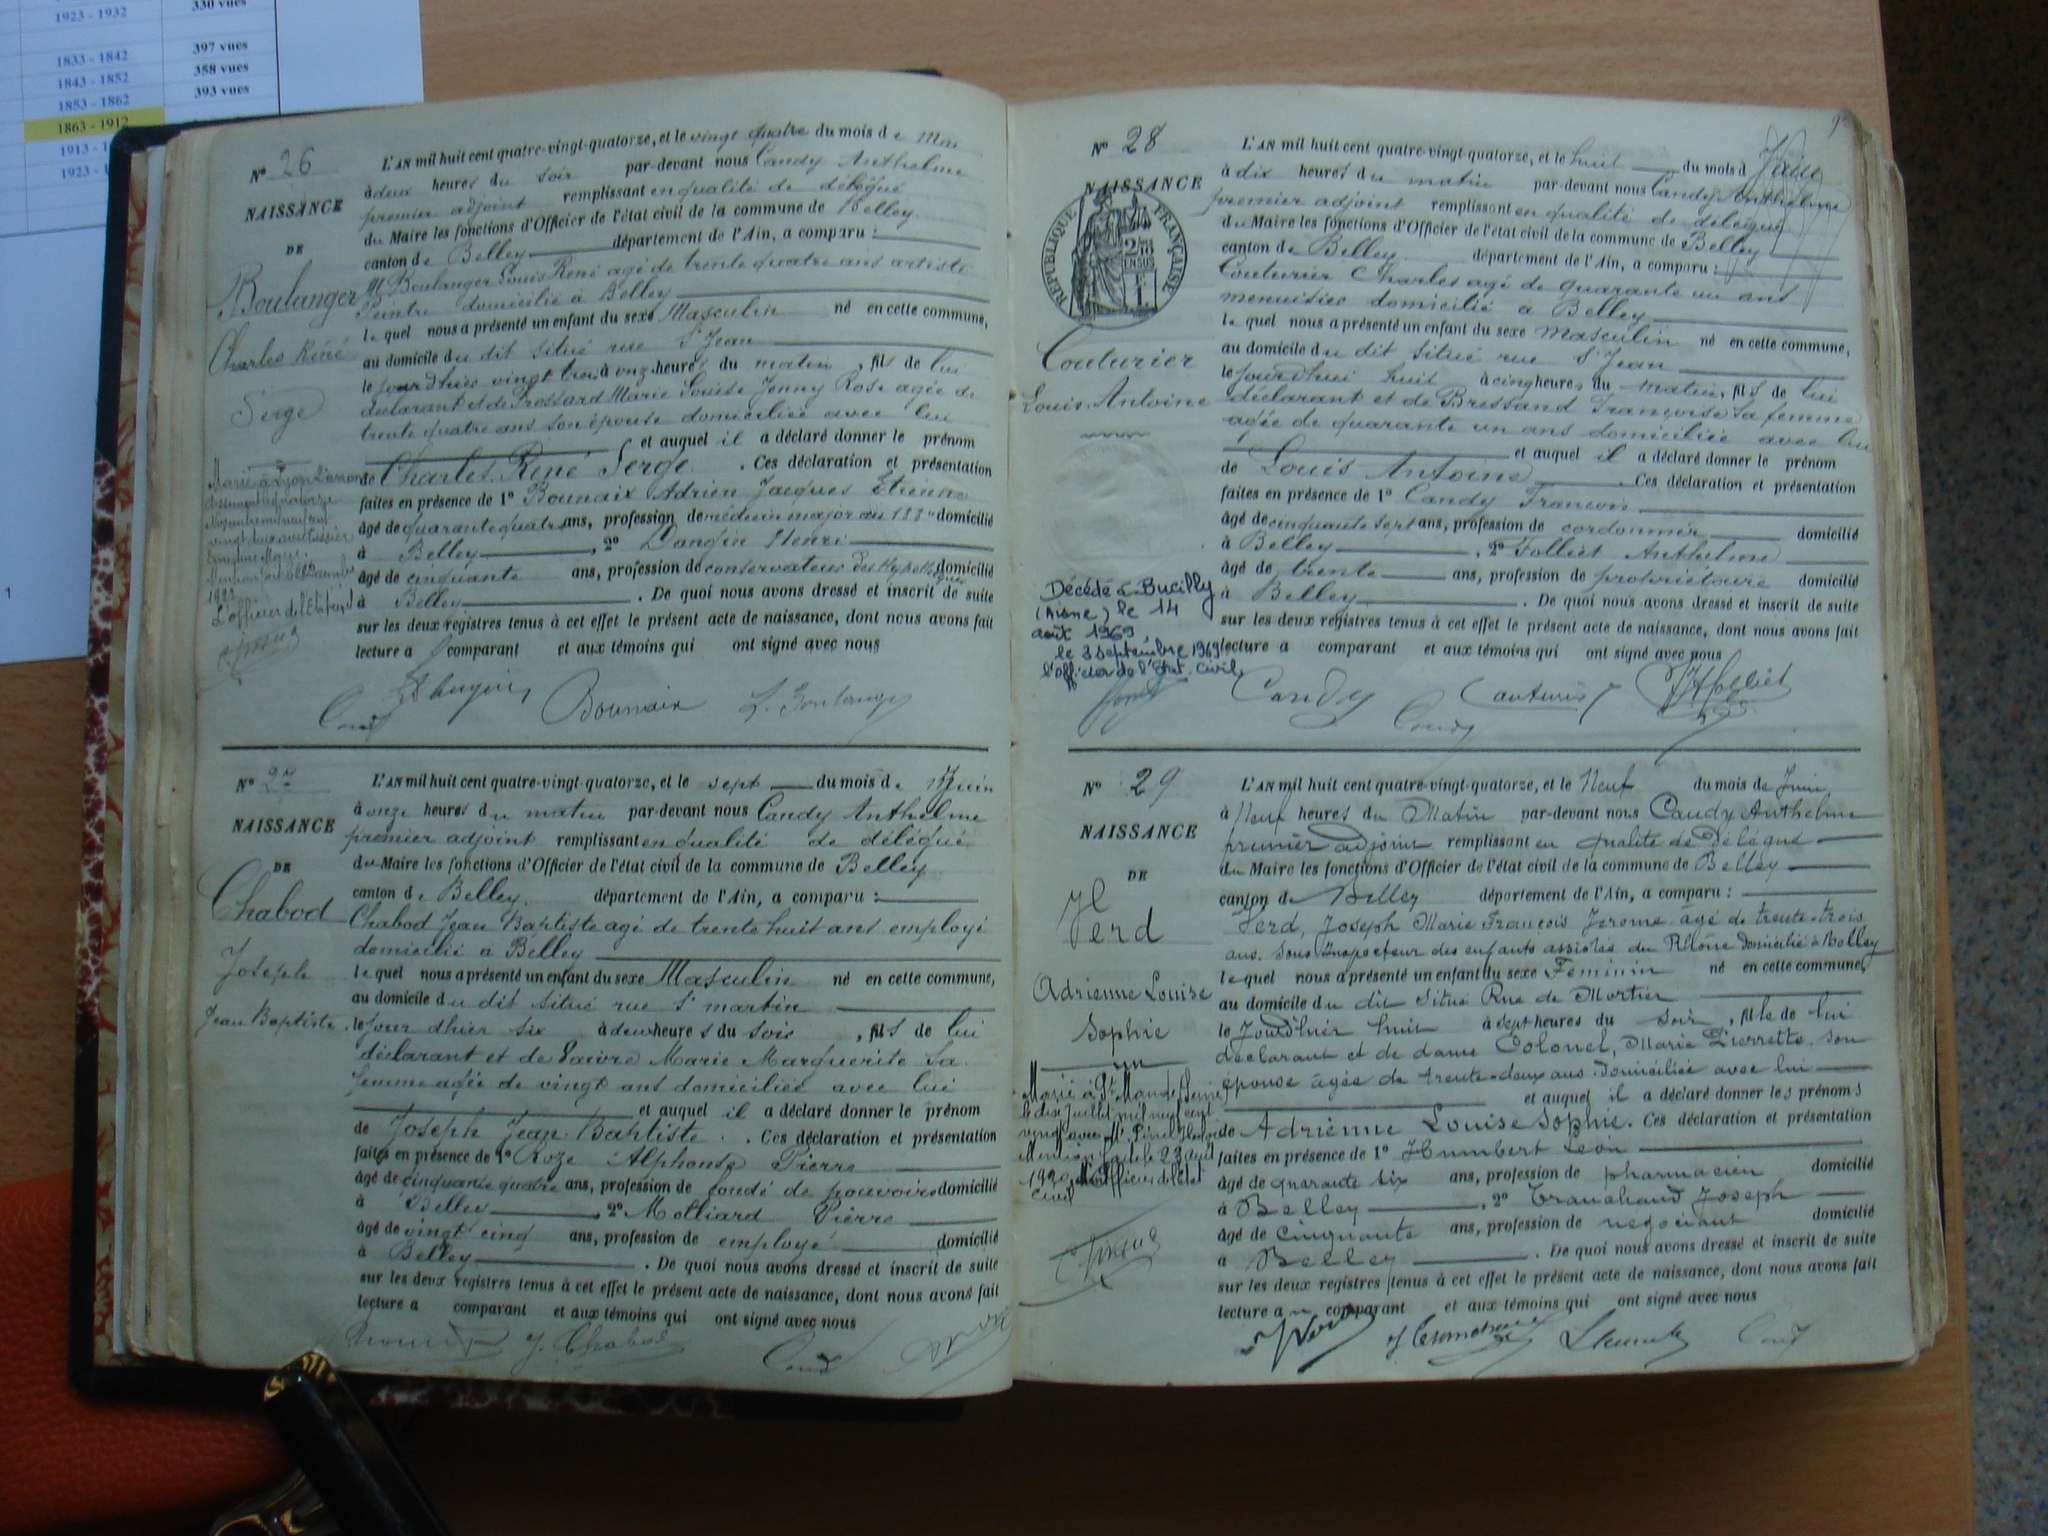 1923 - 1932 330 vues
1833 - 1842 397 vues
1843 - 1852 358 vues
1853 - 1862 393 vues
1863 - 1912
1913 - 1
1923 - 1
1
N° 26
NAISSANCE
DE
Boulanger
Charles Réné
Serge
L'officier de l'Etat civil
L'AN mil huit cent quatre-vingt-quatorze, et le vingt quatre du mois de Mai
à deux heures du soir par-devant nous Candy Anthelme
premier adjoint remplissant en qualité de délégué
du Maire les fonctions d'Officier de l'état civil de la commune de Belley
canton de Belley département de l'Ain, a comparu :
M Boulanger Louis René agé de trente quatre ans artiste
Peintre domicilié à Belley
lequel nous a présenté un enfant du sexe Masculin né en cette commune,
au domicile du dit situé rue St Jean
le jour d'hier vingt trois à onze heures du matin, fils de lui
déclarant et de Frossard Marie Louise Jenny Rose agée de
trente quatre ans son épouse domiciliée avec lui
et auquel il a déclaré donner le prénom
de Charles René Serge. Ces déclaration et présentation
faites en présence de 1° Bounaix Adrien Jacques Etienne
âgé de quarante quatre ans, profession de médecin major au 133e domicilié
à Belley, 2° Dangin Henri
âgé de cinquante ans, profession de conservateur des Hypothèques domicilié
à Belley. De quoi nous avons dressé et inscrit de suite
sur les deux registres tenus à cet effet le présent acte de naissance, dont nous avons fait
lecture a comparant et aux témoins qui ont signé avec nous
Bounaix L. Boulanger
N° 27
NAISSANCE
DE
Chabod
Joseph
Jean Baptiste
L'AN mil huit cent quatre-vingt-quatorze, et le sept du mois de Juin
à onze heures du matin par-devant nous Candy Anthelme
premier adjoint remplissant en qualité de délégué
du Maire les fonctions d'Officier de l'état civil de la commune de Belley
canton de Belley. département de l'Ain, a comparu :
Chabod Jean Baptiste agé de trente huit ans employé
domicilié à Belley
lequel nous a présenté un enfant du sexe Masculin né en cette commune,
au domicile du dit situé rue St martin
le jour dhier six à deux heures du soir, fils de lui
déclarant et de Marie Marguerite sa
femme agée de vingt ans domiciliée avec lui
et auquel il a déclaré donner le prénom
de Joseph Jean Baptiste. Ces déclaration et présentation
faites en présence de 1° Roze Alphonse Pierre
âgé de cinquante quatre ans, profession de fondé de pouvoirs domicilié
à Belley, 2° Molliard Pierre
âgé de vingt cinq ans, profession de employé domicilié
à Belley. De quoi nous avons dressé et inscrit de suite
sur les deux registres tenus à cet effet le présent acte de naissance, dont nous avons fait
lecture a comparant et aux témoins qui ont signé avec nous
J. Chabod
N° 28
NAISSANCE
RÉPUBLIQUE FRANÇAISE
Couturier
Louis Antoine
Décédé à Bucilly
(Aisne) le 14
août 1969
le 3 septembre 1969
l'officier de l'Etat Civil,
L'AN mil huit cent quatre-vingt-quatorze, et le huit du mois d Juin
à dix heures du matin par-devant nous Candy Anthelme
premier adjoint remplissant en qualité de délégué
du Maire les fonctions d'Officier de l'état civil de la commune de Belley
canton de Belley département de l'Ain, a comparu :
Couturier Charles agé de quarante un ans
menuisier domicilié à Belley
lequel nous a présenté un enfant du sexe masculin né en cette commune,
au domicile du dit situé rue St Jean
le jourdhui huit à cinq heures du matin, fils de lui
déclarant et de Bressand Françoise sa femme
agée de quarante un ans domiciliée avec lui
et auquel il a déclaré donner le prénom
de Louis Antoine. Ces déclaration et présentation
faites en présence de 1° Candy François
âgé de cinquante sept ans, profession de cordonnier domicilié
à Belley, 2° Folliet Anthelme
âgé de trente ans, profession de propriétaire domicilié
à Belley. De quoi nous avons dressé et inscrit de suite
sur les deux registres tenus à cet effet le présent acte de naissance, dont nous avons fait
lecture a comparant et aux témoins qui ont signé avec nous
Candy Couturier Folliet
Candy
N° 29
NAISSANCE
DE
Ferd
Adrienne Louise
Sophie
Marié à St Mandé (Seine)
le dix juillet mil neuf cent
vingt avec
Mention faite le
1920, L'officier de l'Etat
Civil
L'AN mil huit cent quatre-vingt-quatorze, et le Neuf du mois de Juin
à Neuf heures du Matin par-devant nous Candy Anthelme
premier adjoint remplissant en qualité de Délégué
du Maire les fonctions d'Officier de l'état civil de la commune de Belley
canton de Belley département de l'Ain, a comparu :
Ferd, Joseph Marie François Jerome agé de trente-trois
ans. Sous Inspecteur des enfants assistés du Rhône domicilié à Belley
lequel nous a présenté un enfant du sexe Féminin né en cette commune,
au domicile du dit situé Rue de Mortier
le Jourd'hier huit à sept heures du soir, fille de lui
déclarant et de dame Colonel, Marie Pierrette, son
épouse âgée de trente-deux ans domiciliée avec lui
et auquel il a déclaré donner les prénoms
de Adrienne Louise Sophie. Ces déclaration et présentation
faites en présence de 1° Humbert Léon
âgé de quarante six ans, profession de pharmacien domicilié
à Belley, 2° Tranchand Joseph
âgé de cinquante ans, profession de négociant domicilié
à Belley. De quoi nous avons dressé et inscrit de suite
sur les deux registres tenus à cet effet le présent acte de naissance, dont nous avons fait
lecture au comparant et aux témoins qui ont signé avec nous